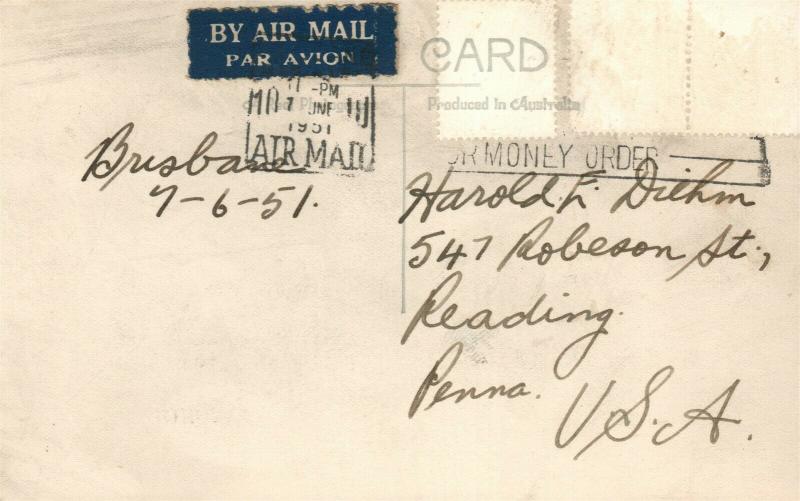 BY AIR MAIL
PAR AVION
CARD
Produced in Australia
-PM
7 JUNE
1951
AIR MAIL
MONEY ORDER
Brisbane
7-6-51.
Harold F. Diehm
547 Robeson St.,
Reading.
Penna.
U.S.A.